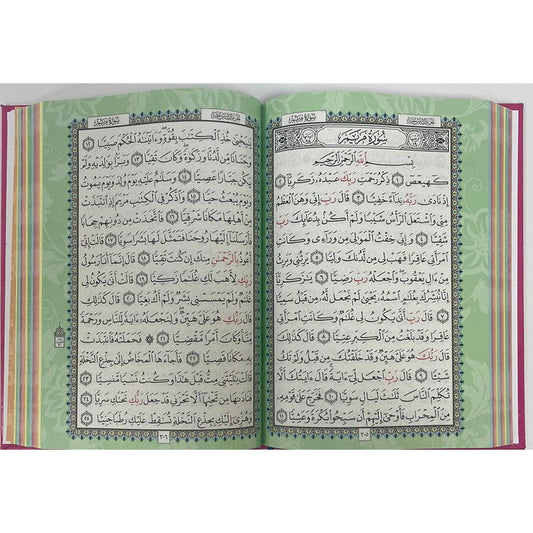 الجزء السادس عشر سورة مريم
سُورَةُ مَرْيَمَ
بِسْمِ اللَّهِ الرَّحْمَٰنِ الرَّحِيمِ
كٓهيعٓصٓ ١ ذِكْرُ رَحْمَتِ رَبِّكَ عَبْدَهُۥ زَكَرِيَّآ ٢
إِذْ نَادَىٰ رَبَّهُۥ نِدَآءً خَفِيًّا ٣ قَالَ رَبِّ إِنِّى وَهَنَ ٱلْعَظْمُ
مِنِّى وَٱشْتَعَلَ ٱلرَّأْسُ شَيْبًا وَلَمْ أَكُنۢ بِدُعَآئِكَ رَبِّ
شَقِيًّا ٤ وَإِنِّى خِفْتُ ٱلْمَوَٰلِىَ مِن وَرَآءِى وَكَانَتِ
ٱمْرَأَتِى عَاقِرًا فَهَبْ لِى مِن لَّدُنكَ وَلِيًّا ٥ يَرِثُنِى وَيَرِثُ
مِنْ ءَالِ يَعْقُوبَ وَٱجْعَلْهُ رَبِّ رَضِيًّا ٦ يَٰزَكَرِيَّآ
إِنَّا نُبَشِّرُكَ بِغُلَٰمٍ ٱسْمُهُۥ يَحْيَىٰ لَمْ نَجْعَل لَّهُۥ مِن قَبْلُ سَمِيًّا
٧ قَالَ رَبِّ أَنَّىٰ يَكُونُ لِى غُلَٰمٌ وَكَانَتِ ٱمْرَأَتِى
عَاقِرًا وَقَدْ بَلَغْتُ مِنَ ٱلْكِبَرِ عِتِيًّا ٨ قَالَ كَذَٰلِكَ
قَالَ رَبُّكَ هُوَ عَلَىَّ هَيِّنٌ وَقَدْ خَلَقْتُكَ مِن قَبْلُ وَلَمْ تَكُ
شَيْـًٔا ٩ قَالَ رَبِّ ٱجْعَل لِّىٓ ءَايَةً قَالَ ءَايَتُكَ أَلَّا
تُكَلِّمَ ٱلنَّاسَ ثَلَٰثَ لَيَالٍ سَوِيًّا ١٠ فَخَرَجَ عَلَىٰ قَوْمِهِۦ
مِنَ ٱلْمِحْرَابِ فَأَوْحَىٰٓ إِلَيْهِمْ أَن سَبِّحُوا۟ بُكْرَةً وَعَشِيًّا ١١
٣٠٥
الجزء السادس عشر سورة مريم
يَٰيَحْيَىٰ خُذِ ٱلْكِتَٰبَ بِقُوَّةٍ وَءَاتَيْنَٰهُ ٱلْحُكْمَ صَبِيًّا ١٢
وَحَنَانًا مِّن لَّدُنَّا وَزَكَوٰةً وَكَانَ تَقِيًّا ١٣ وَبَرًّۢا بِوَٰلِدَيْهِ وَلَمْ
يَكُن جَبَّارًا عَصِيًّا ١٤ وَسَلَٰمٌ عَلَيْهِ يَوْمَ وُلِدَ وَيَوْمَ يَمُوتُ
وَيَوْمَ يُبْعَثُ حَيًّا ١٥ وَٱذْكُرْ فِى ٱلْكِتَٰبِ مَرْيَمَ إِذِ ٱنتَبَذَتْ
مِنْ أَهْلِهَا مَكَانًا شَرْقِيًّا ١٦ فَٱتَّخَذَتْ مِن دُونِهِمْ حِجَابًا
فَأَرْسَلْنَآ إِلَيْهَا رُوحَنَا فَتَمَثَّلَ لَهَا بَشَرًا سَوِيًّا ١٧ قَالَتْ إِنِّىٓ
أَعُوذُ بِٱلرَّحْمَٰنِ مِنكَ إِن كُنتَ تَقِيًّا ١٨ قَالَ إِنَّمَآ أَنَا۠ رَسُولُ
رَبِّكِ لِأَهَبَ لَكِ غُلَٰمًا زَكِيًّا ١٩ قَالَتْ أَنَّىٰ يَكُونُ لِى
غُلَٰمٌ وَلَمْ يَمْسَسْنِى بَشَرٌ وَلَمْ أَكُ بَغِيًّا ٢٠ قَالَ كَذَٰلِكِ
قَالَ رَبُّكِ هُوَ عَلَىَّ هَيِّنٌ وَلِنَجْعَلَهُۥٓ ءَايَةً لِّلنَّاسِ وَرَحْمَةً
مِّنَّا وَكَانَ أَمْرًا مَّقْضِيًّا ٢١ فَحَمَلَتْهُ فَٱنتَبَذَتْ
بِهِۦ مَكَانًا قَصِيًّا ٢٢ فَأَجَآءَهَا ٱلْمَخَاضُ إِلَىٰ جِذْعِ ٱلنَّخْلَةِ
قَالَتْ يَٰلَيْتَنِى مِتُّ قَبْلَ هَٰذَا وَكُنتُ نَسْيًا مَّنسِيًّا
٢٣ فَنَادَىٰهَا مِن تَحْتِهَآ أَلَّا تَحْزَنِى قَدْ جَعَلَ رَبُّكِ تَحْتَكِ سَرِيًّا
٢٤ وَهُزِّىٓ إِلَيْكِ بِجِذْعِ ٱلنَّخْلَةِ تُسَٰقِطْ عَلَيْكِ رُطَبًا جَنِيًّا ٢٥
٣٠٦